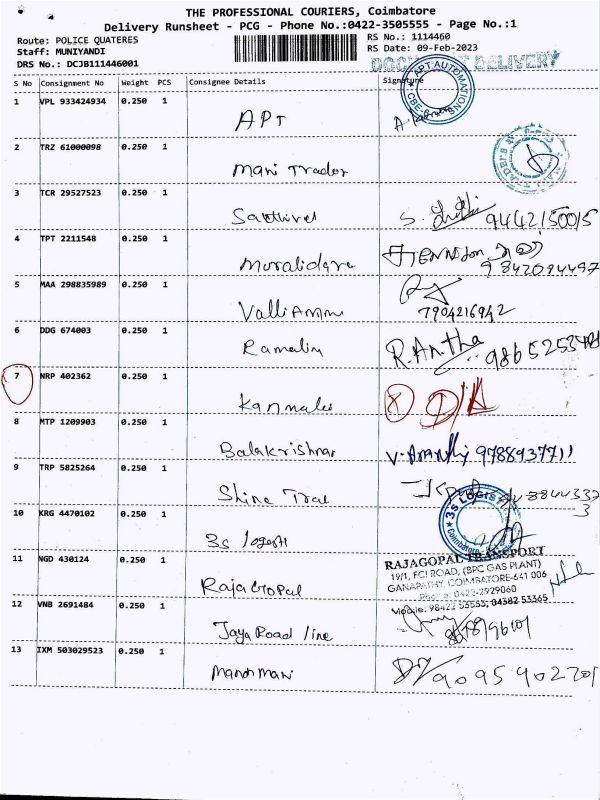 THE PROFESSIONAL COURIERS, Coimbatore
Delivery Runsheet - PCG - Phone No.:0422-3505555 - Page No.:1
Route: POLICE QUATERES
RS No.: 1114460
Staff: MUNIYANDI
RS Date: 09-Feb-2023
DRS No.: DCJB111446001
DELIVERY
S No Consignment No Weight PCS Consignee Details Signature
APT AUTOMATIONS
1 VPL 933424934 0.250 1
APT
2 TRZ 61000098 0.250 1
Mani Trador
3 TCR 29527523 0.250 1
Sakthivel
9442150015
4 TPT 2211548 0.250 1
Muralidara
9842094497
5 MAA 298835989 0.250 1
Valliammi
7904216942
6 DDG 674003 0.250 1
Ramalin
R.Antha
7 NRP 402362 0.250 1
D/A
8 MTP 1209903 0.250 1
Balakrishnar
9 TRP 5825264 0.250 1
Shine Trae
10 KRG 4470102 0.250 1
3S LOGIS
3s
Coimbatore
11 NGD 430124 0.250 1
RAJAGOPAL TRANSPORT
19/1, FCI ROAD, (BPC GAS PLANT)
GANAPATHY, COIMBATORE-641 006
Phone: 0422-2929060
Raja Gopal
Mobile: 98422 53333, 04382 53365
12 VNB 2691484 0.250 1
Jaya Road line
13 IXM 503029523 0.250 1
Manonmani